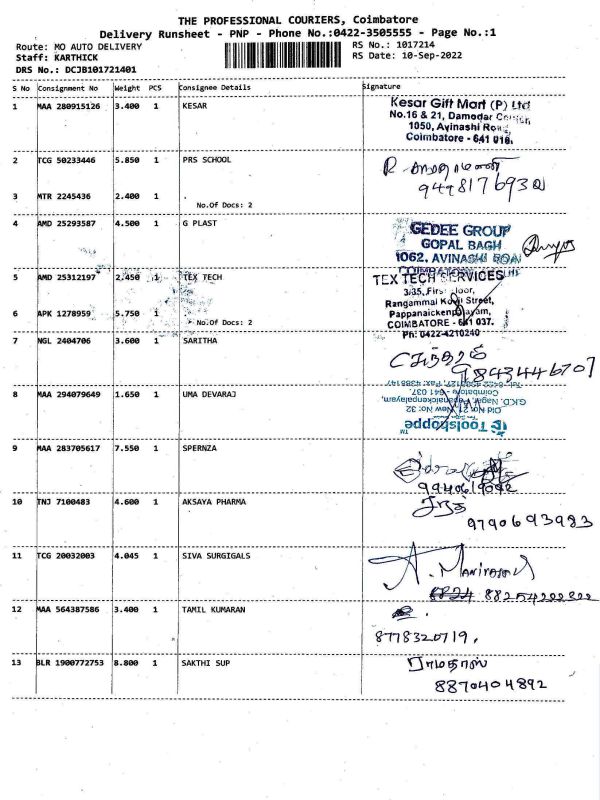 THE PROFESSIONAL COURIERS, Coimbatore
Delivery Runsheet - PNP - Phone No.:0422-3505555 - Page No.:1
Route: MO AUTO DELIVERY RS No.: 1017214
Staff: KARTHICK RS Date: 10-Sep-2022
DRS No.: DCJB101721401
S No Consignment No Weight PCS Consignee Details Signature
1 MAA 280915126 3.400 1 KESAR
Kesar Gift Mart (P) Ltd
No.16 & 21, Damodar
1050, Avinashi
Coimbatore - 641 018.
2 TCG 50233446 5.850 1 PRS SCHOOL
3 MTR 2245436 2.400 1
No.Of Docs: 2
4 AMD 25293587 4.500 1 G PLAST
GEDEE GROUP
GOPAL BAGH
1062, AVINASHI ROAD
5 AMD 25312197 2.450 1 TEX TECH
TEX TECH SERVICES
3/35, First Floor,
Rangammal Kovil Street,
Pappanaickenpalayam,
COIMBATORE - 641 037.
Ph: 0422-4210240
6 APK 1278959 5.750 1
No.Of Docs: 2
7 NGL 2404706 3.600 1 SARITHA
9843446707
8 MAA 294079649 1.650 1 UMA DEVARAJ
Toolshoppe
Old No: 21, New No: 32
G.K.D. Nagar, Papanaickenpalayam,
Coimbatore - 641 037.
9 MAA 283705617 7.550 1 SPERNZA
10 TNJ 7100483 4.600 1 AKSAYA PHARMA
9790693983
11 TCG 20032003 4.045 1 SIVA SURGIGALS
12 MAA 564387586 3.400 1 TAMIL KUMARAN
8778320719.
13 BLR 1900772753 8.800 1 SAKTHI SUP
ராமதாஸ்
8870404892